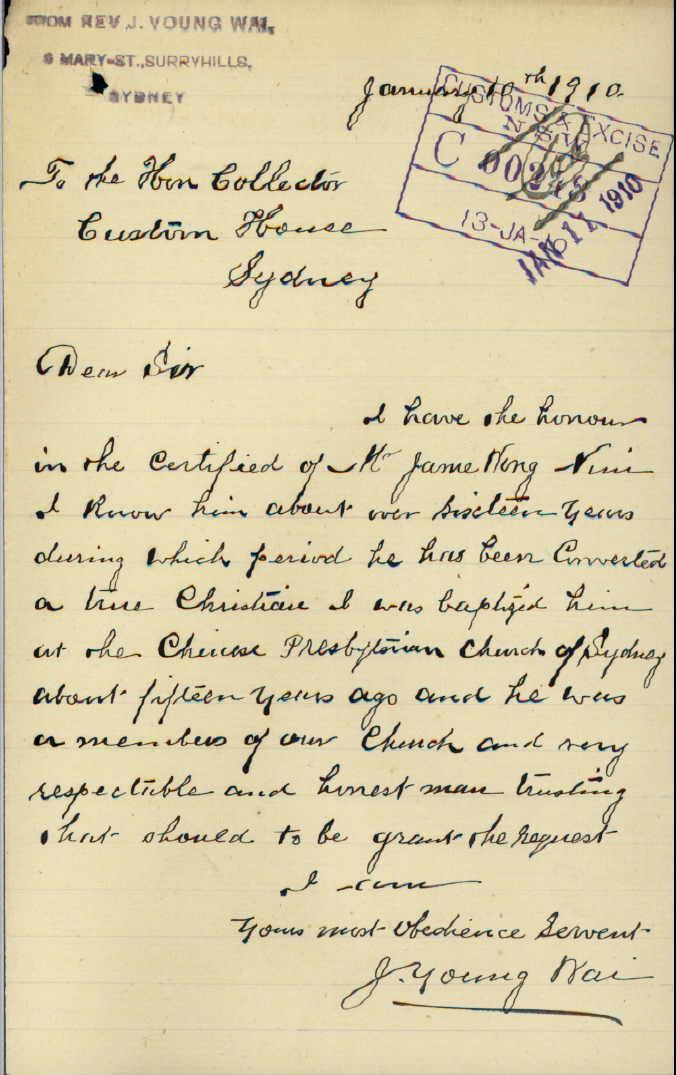 FROM REV J. YOUNG WAI,
MARY-ST., SURRYHILLS,
SYDNEY
January 10th 1910.
CUSTOMS & EXCISE
N.S.W.
C 00248
13-JA-10
JAN 11 1910
To the Hon Collector
Custom House
Sydney
Dear Sir
I have the honour
in the Certified of Mr Jame Wong Nim
I Know him about over Sixteen Years
during which period he has been Converted
a true Christian I was baptized him
at the Chinese Presbyterian Church of Sydney
about fifteen Years ago and he was
a members of our Church and very
respectable and honest man trusting
that should to be grant the request
I am
Yours most Obedience Servent
J. Young Wai